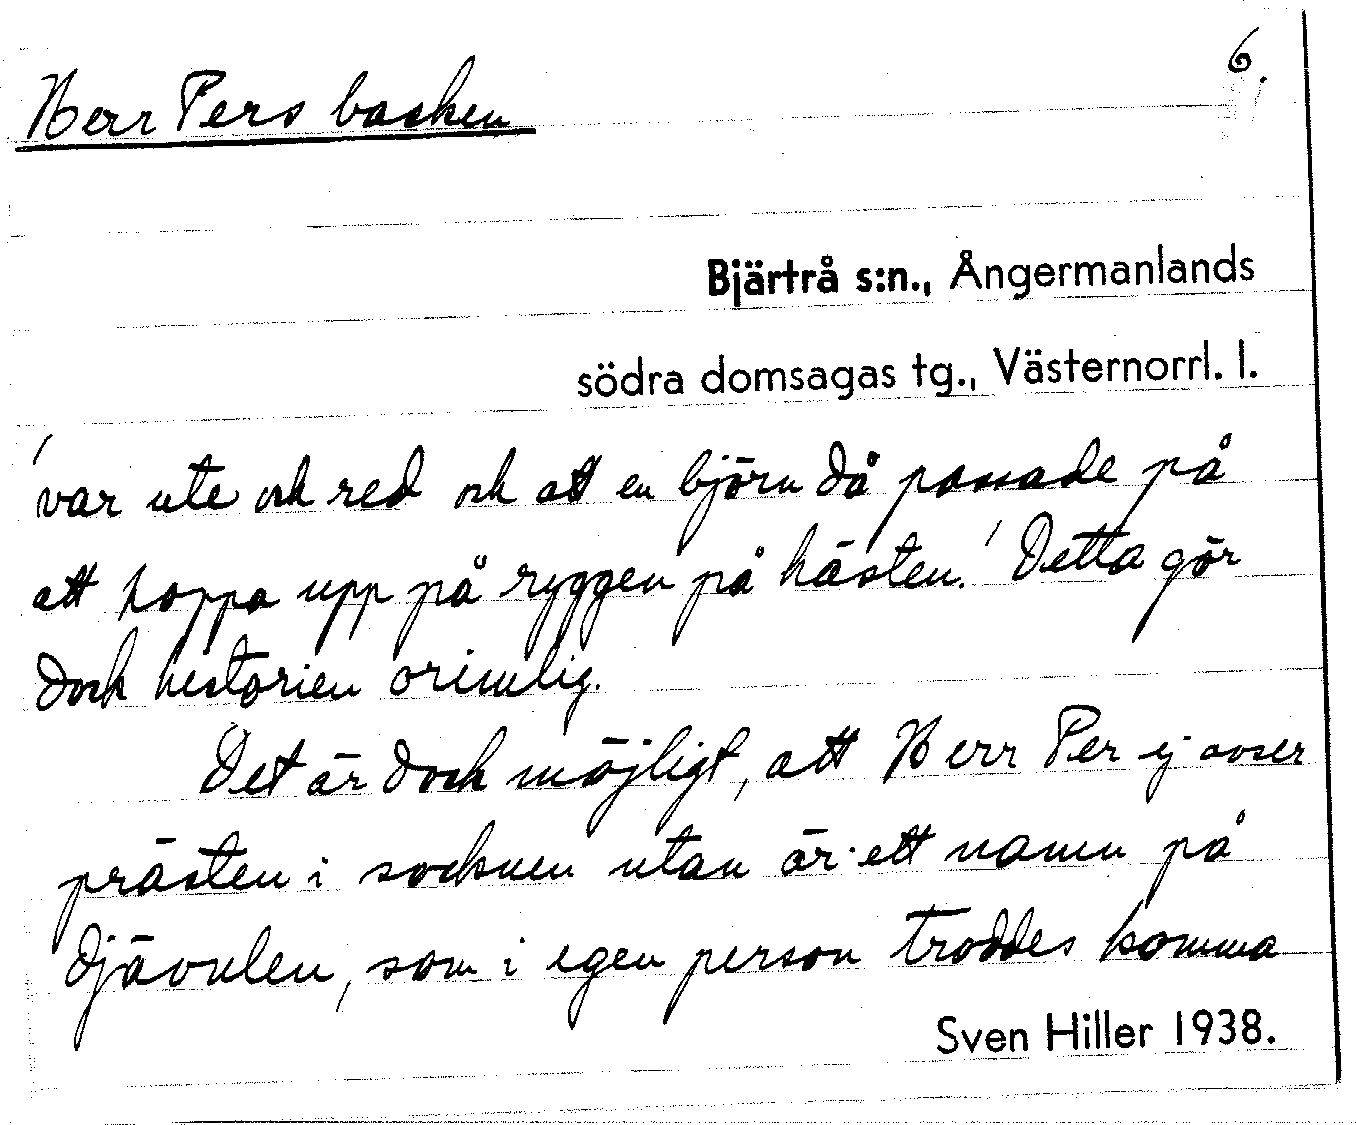 Herr Pers backen
6.
Bjärtrå s:n., Ångermanlands
södra domsagas tg., Västernorrl. l.
'var ute och red och att en björn då passade på
att hoppa upp på ryggen på hästen.' Detta gör
dock historien orimlig.
Det är dock möjligt, att Herr Per ej avser
prästen i socknen utan är ett namn på
djävulen, som i egen person troddes komma
Sven Hiller 1938.